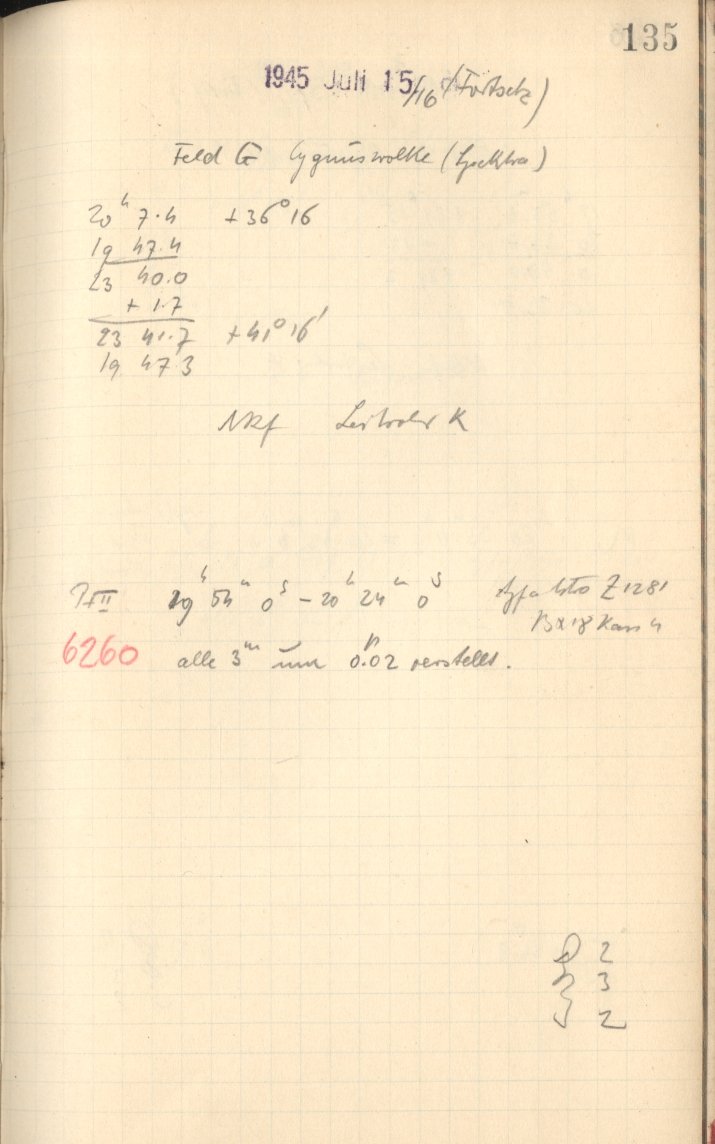 135
1945 Juli 15/16 (Fortsetz)
Feld G Cygnuswolke (Spektra)
20ʰ 7.4 +36° 16
19 47.4
23 40.0
+ 1.7
23 41.7 +41° 16'
19 47 3
Nkf K
19ʰ 54ᵐ 0ˢ – 20ʰ 24ᵐ 0ˢ Agfa Z 1281
18 Kass 4
6260 alle 3ᵐ um 0.02 verstellt.
2
3
2